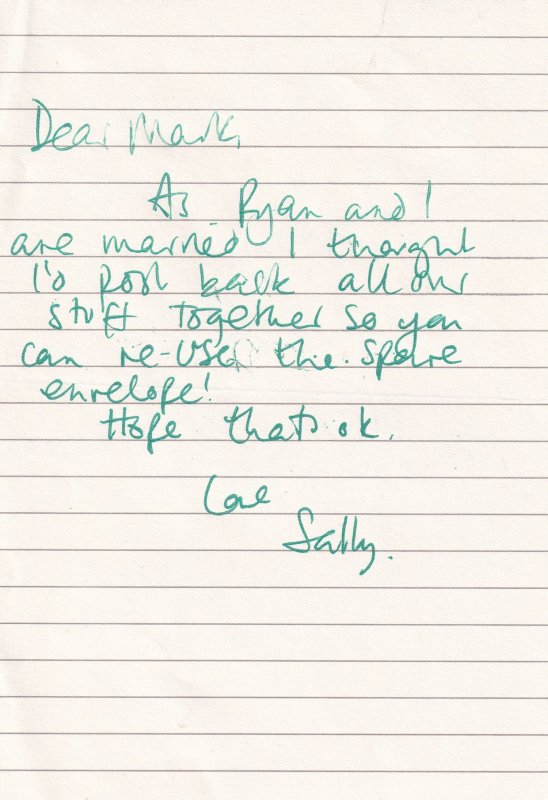 Dear Mark,
As Ryan and I
are married I thought
I'd post back all our
stuff together so you
can re-use the spare
envelope!
Hope thats ok.
Love
Sally.